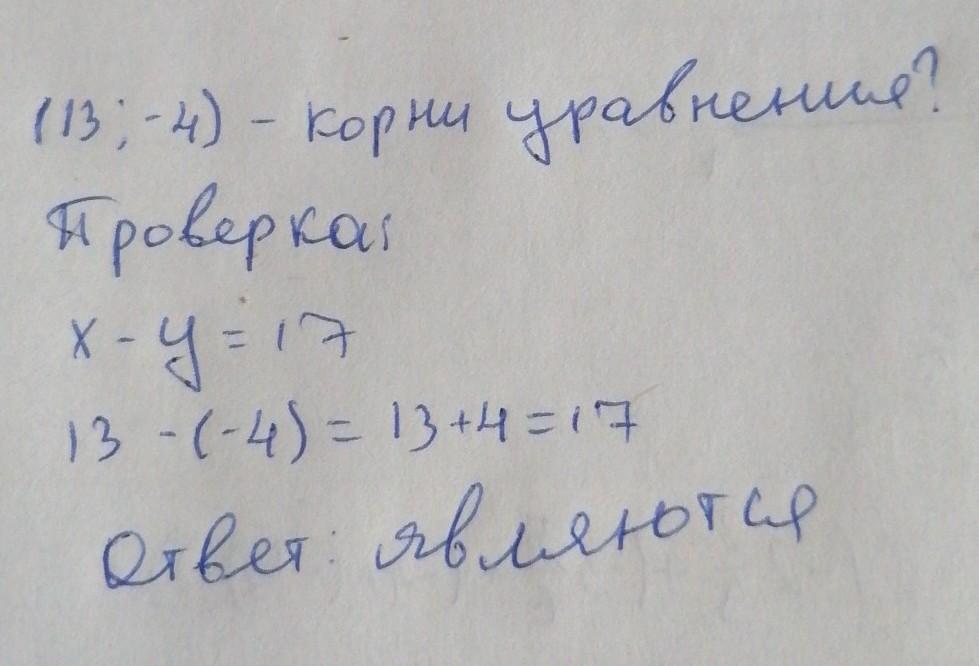 (13; -4) - корни уравнения?
Проверка:
x - y = 17
13 - (-4) = 13+4 = 17
Ответ: являются